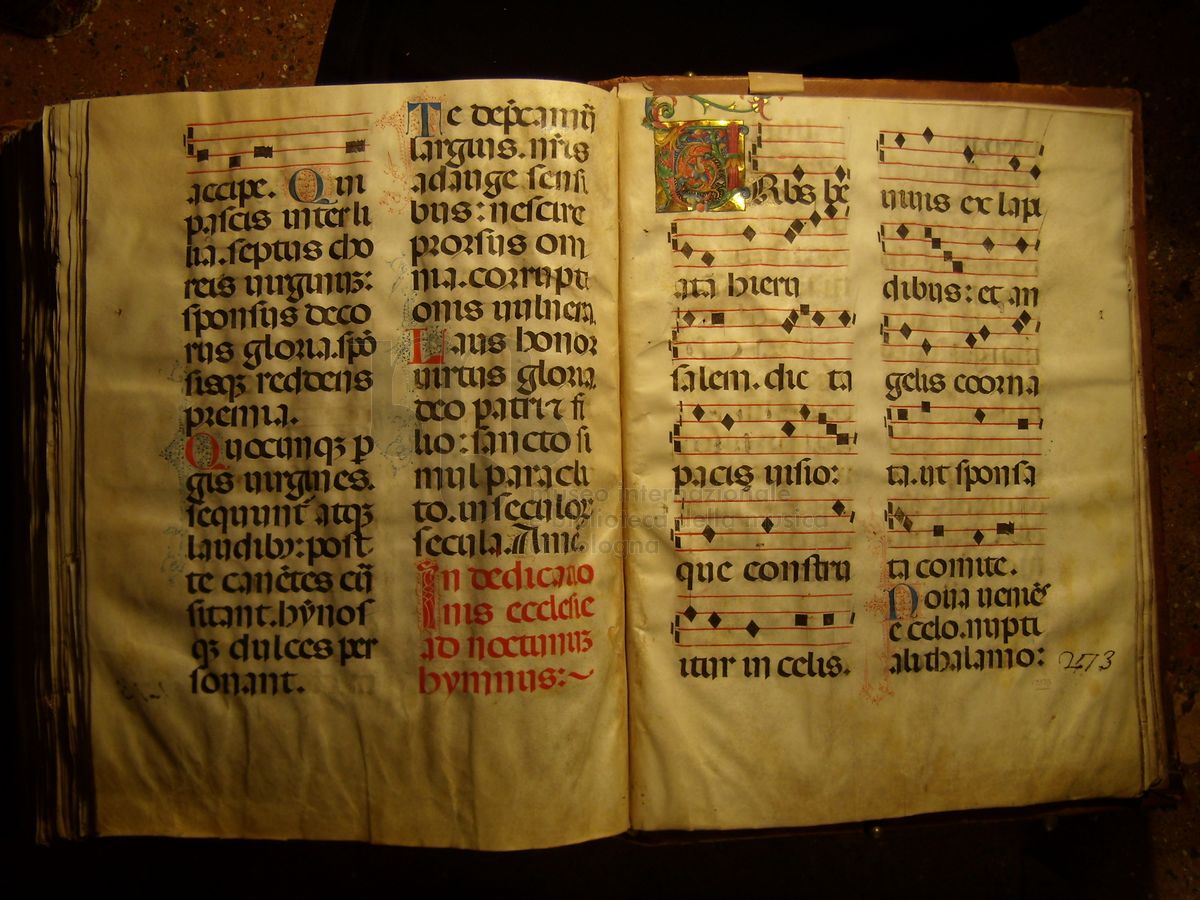 accipe. Qui
pascis interli
lia. septus cho
reis uirginuʒ:
sponsus deco
rus gloria. spō
sisqʒ reddens
premia.
Quocunqʒ p
gis uirgines.
sequunt̄ atqʒ
laudibꝰ: post
te canētes cū
sitant. hȳnos
qʒ dulces per
sonant.
Te dep̄camū
largius. nr̄is
adauge sensi
bus: nescire
prorsus om
nia. corrupti
onis uulnera
Laus honor
uirtus gloria
deo patri ⁊ fi
lio: sancto si
mul paracli
to. in seculoꝝ
secula. Amē.
In dedicatio
nis ecclesie
ad nocturnuʒ
hymnus:~
URbs be
ata hieru
salem. dic ta
pacis uisio:
que constru
itur in celis.
uiuis ex lapi
dibus: et an
gelis coorna
ta. ut sponsa
ta comite.
Noua ueniēs
e celo. nupti
ali thalamo:
273
museo internazionale
e biblioteca della musica
di bologna